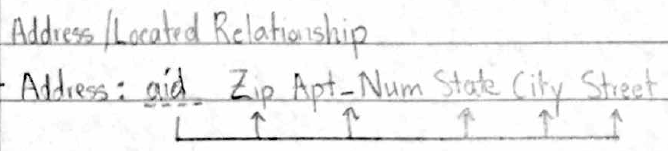 Address/Located Relationship
- Address: aid Zip Apt-Num State City Street